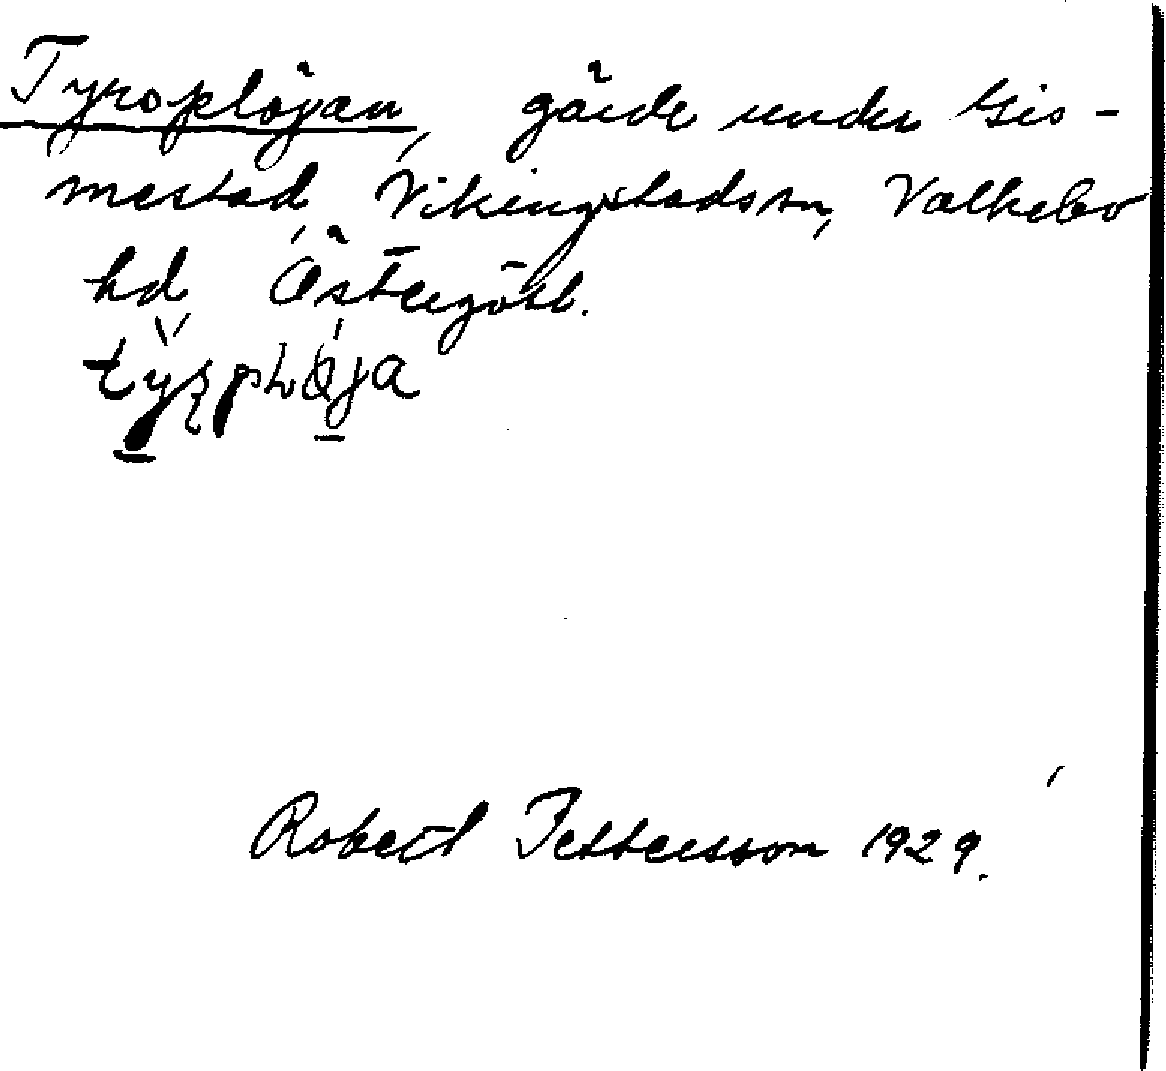 Tyroplöjan, gärde under Gis-
mestad, Vikingstads sn, Valkebo
hd, Östergötl.
Robert Pettersson 1929.